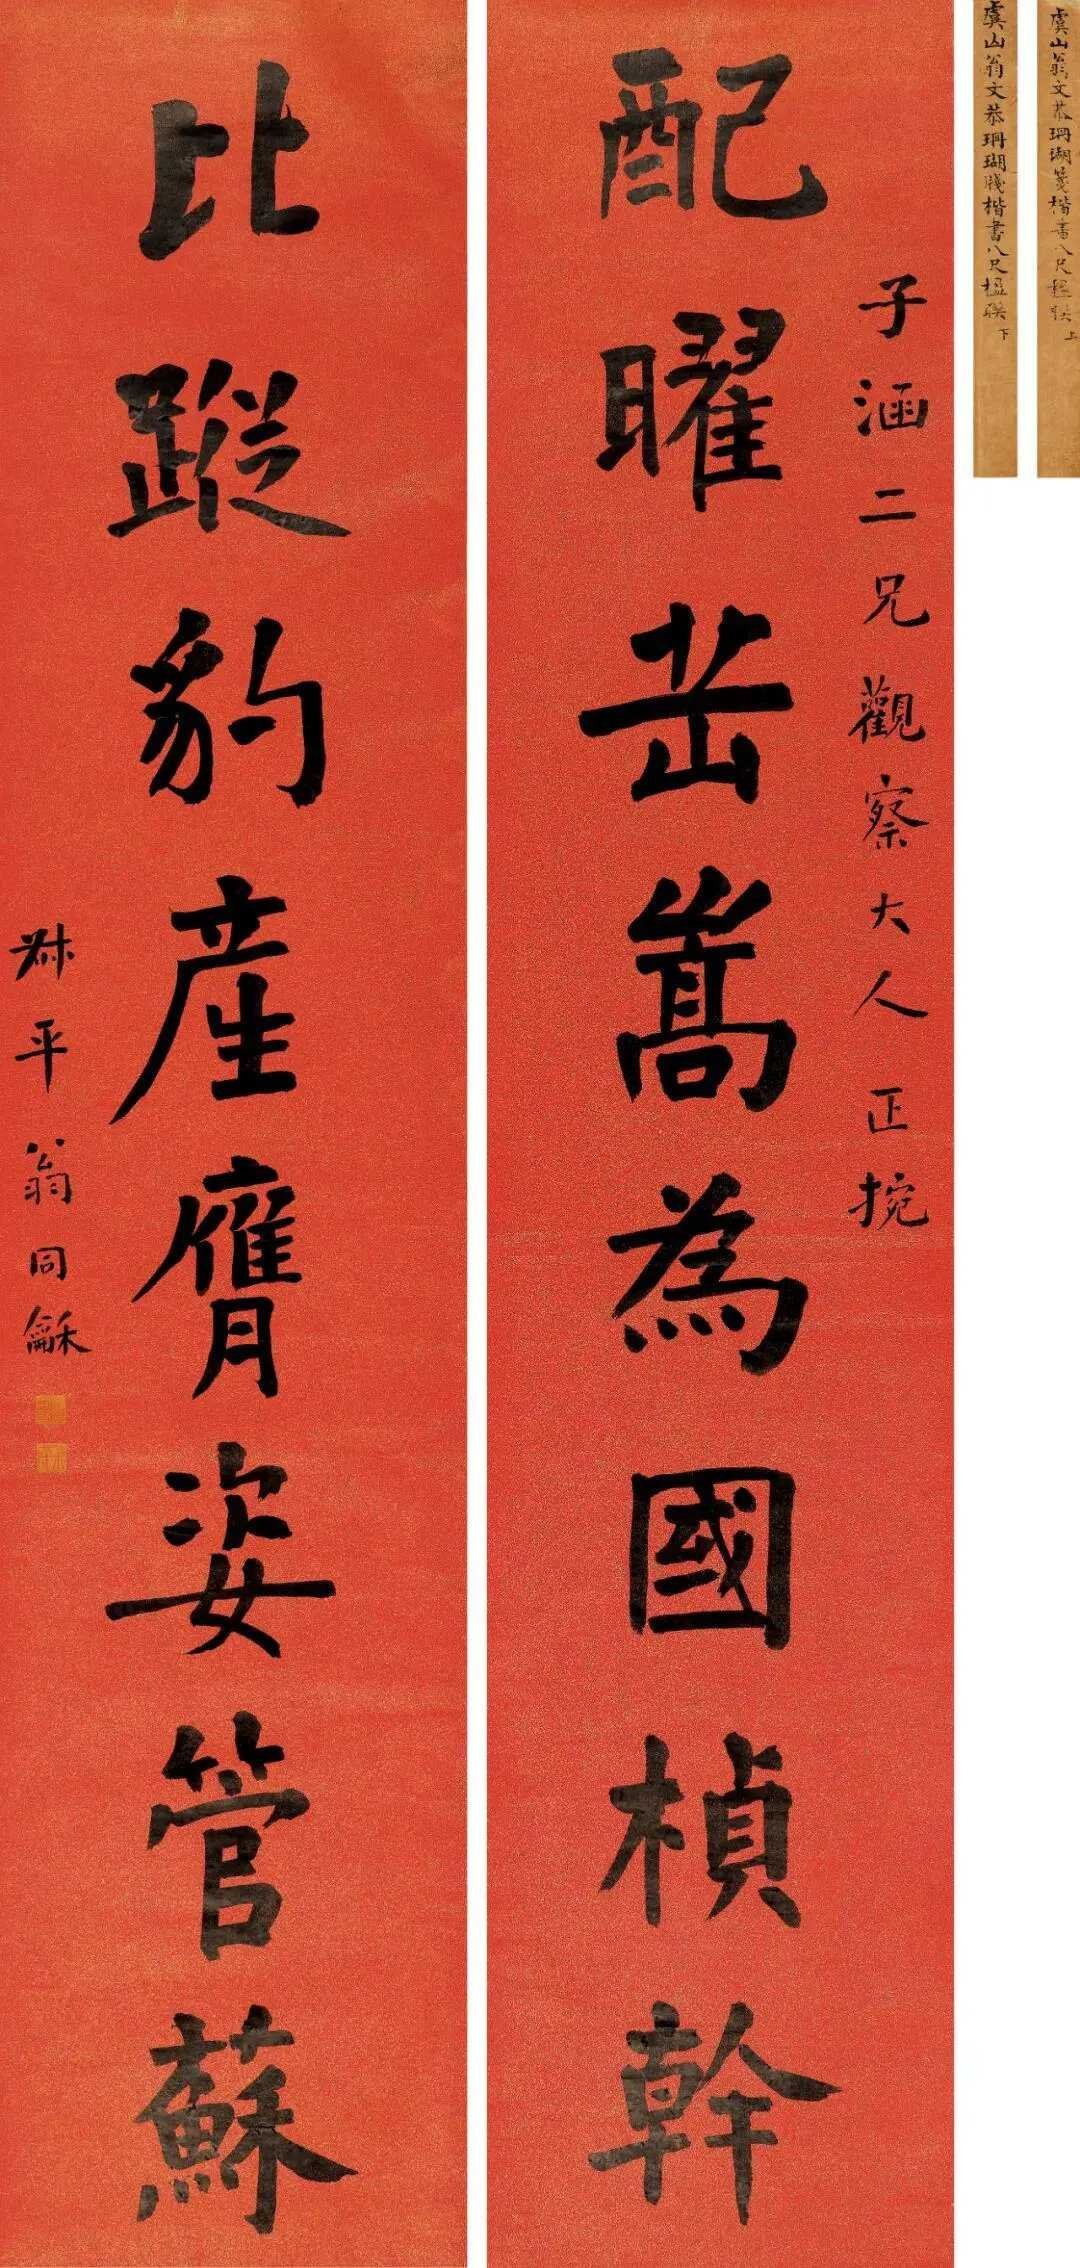 虞山翁文恭珊瑚箋楷書八尺楹聯 上
虞山翁文恭珊瑚牋楷書八尺楹聯 下
子涵二兄觀察大人正捥
配曜岳嵩為國楨幹
比蹤豹產膺姿管蘇
叔平翁同龢